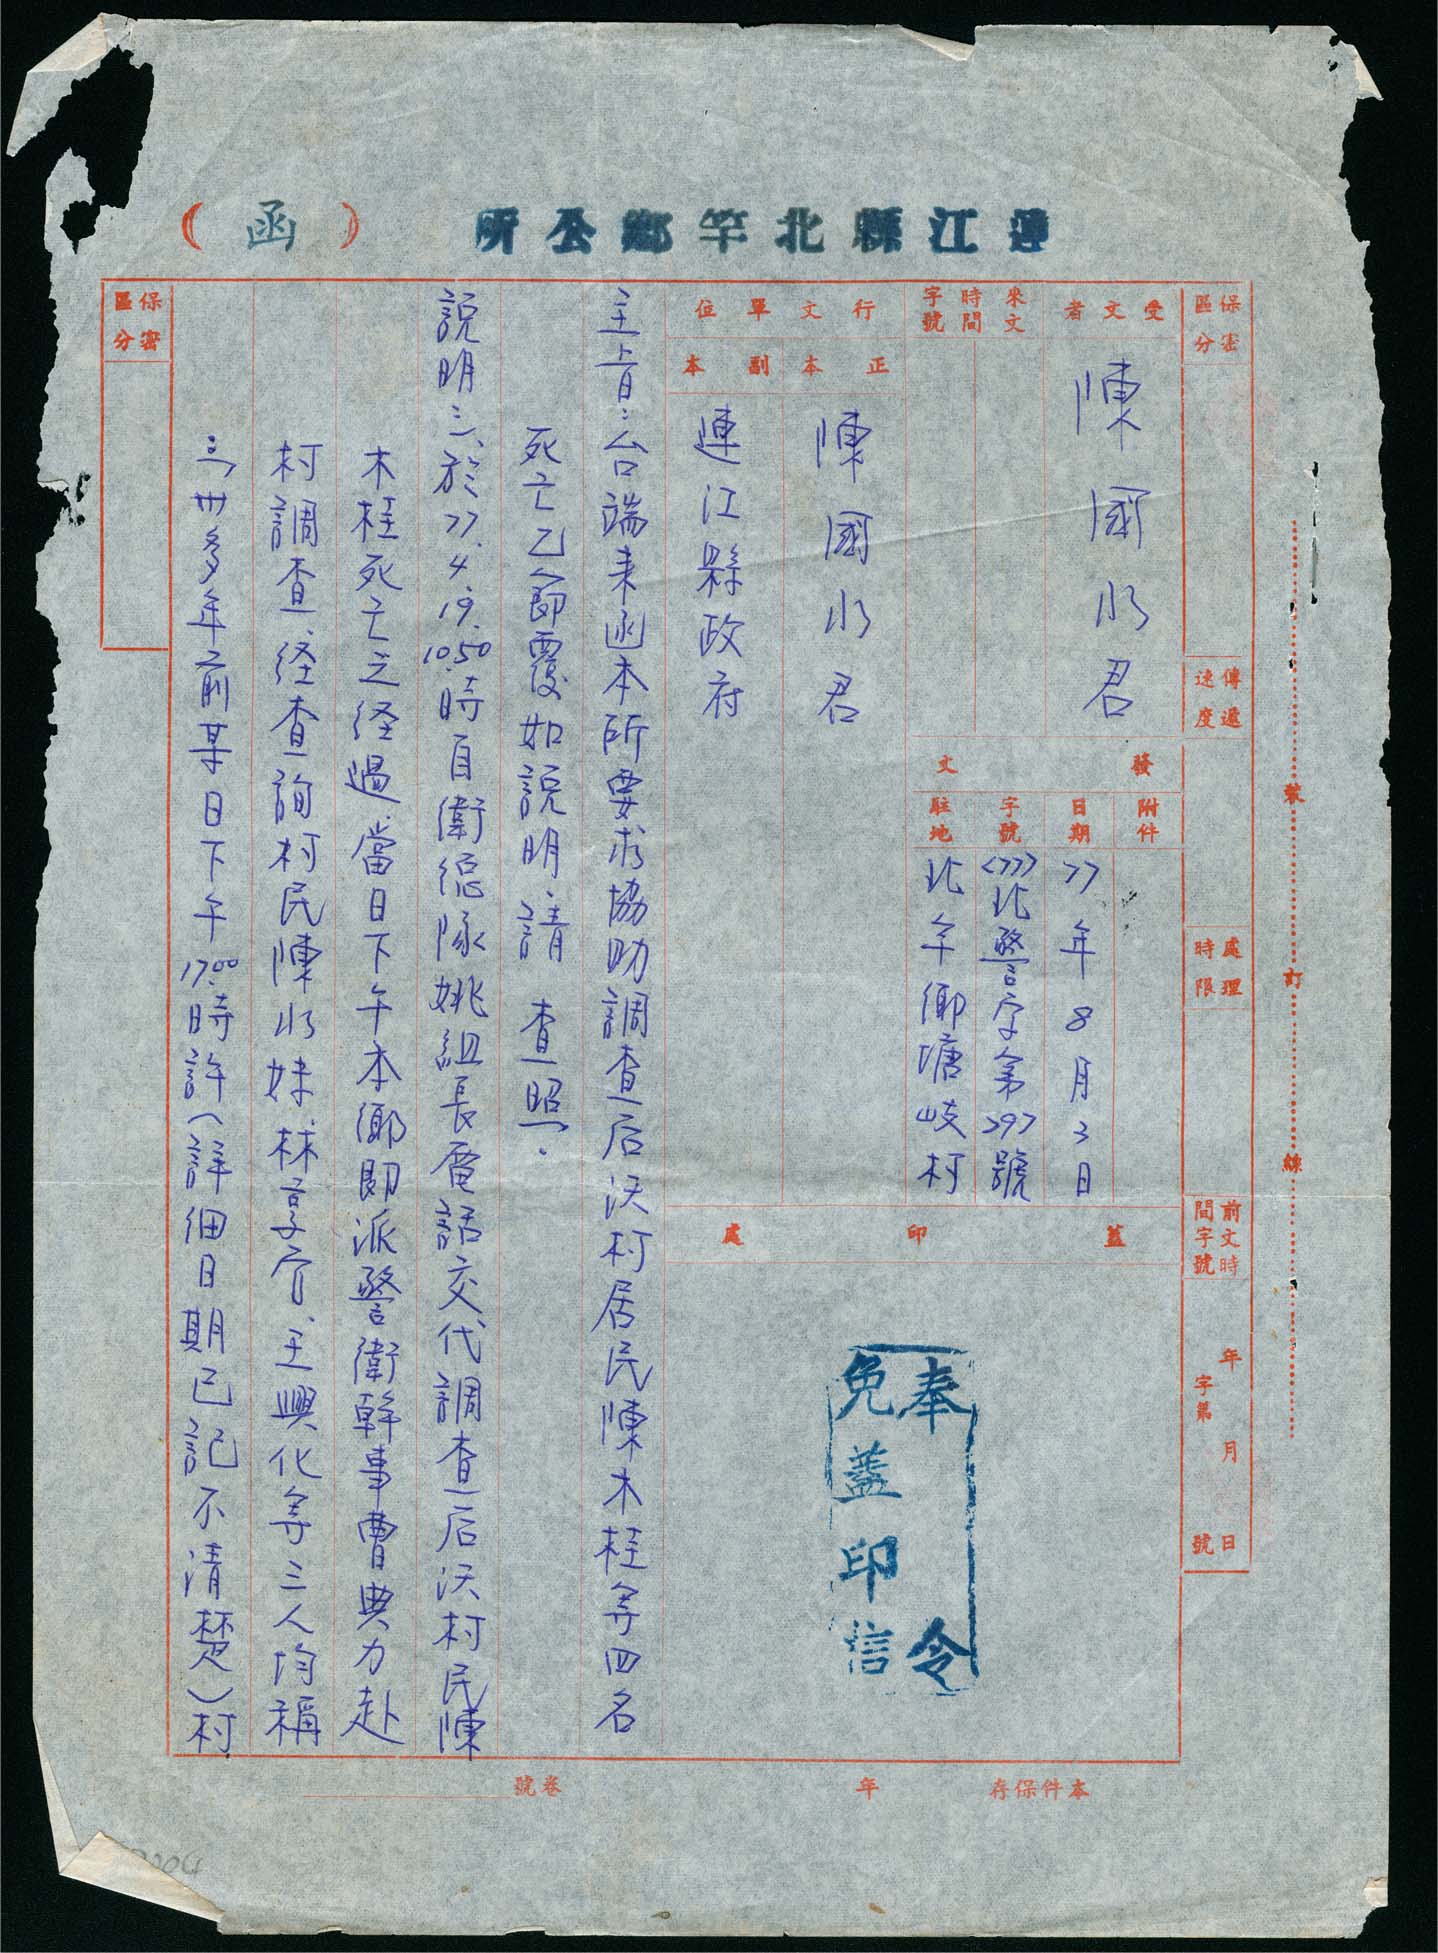 連江縣北竿鄉公所
(函)
保密區分
傳遞速度
處理時限
前文時間字號
年 月 日
字第 號
受文者
陳國水君
來文時間字號
行文單位
正本
陳國水君
副本
連江縣政府
發文
附件
日期
77年8月3日
字號
<77>北警字第297號
駐地
北竿鄉塘岐村
蓋印處
奉令
免蓋印信
主旨:台端来函本所要求協助調查后沃村居民陳木桂等四名
死亡乙節覆如說明、請 查照.
說明:二、於77.4.19.10.50時自衛總隊姚組長電話交代調查后沃村民陳
木桂死亡之經過、當日下午本鄉即派警衛幹事曹典力赴
村調查、経查詢村民陳水妹、林享官、王興化等三人均稱
卅多年前某日下午17.00時許(詳細日期已記不清楚)村
保密區分
裝訂線
本件保存 年
卷號